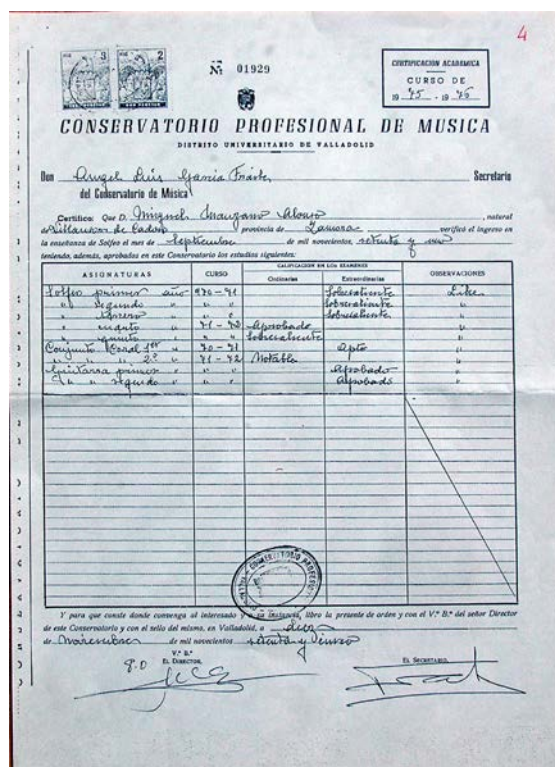 4
3
2
Nº 01929
CERTIFICACION ACADEMICA
CURSO DE
19 75 - 19 76
CONSERVATORIO PROFESIONAL DE MUSICA
DISTRITO UNIVERSITARIO DE VALLADOLID
Don Angel Luis Garcia Secretario
del Conservatorio de Música
Certifico: Que D. Miguel Manzano Alonso, natural
de Villamor de Cadozos provincia de Zamora verificó el ingreso en
la enseñanza de Solfeo el mes de Septiembre de mil novecientos, setenta y uno
teniendo, además, aprobados en este Conservatorio los estudios siguientes:
ASIGNATURAS CURSO CALIFICACION EN LOS EXAMENES OBSERVACIONES
Ordinarios Extraordinarios
Solfeo primer año 970-71 Sobresaliente Libre
" segundo " " " Sobresaliente "
" tercero " " " Sobresaliente "
" cuarto " 71-72 Aprobado "
" quinto " " " Sobresaliente "
Conjunto Coral 1er " 70-71 Apto "
" " 2º " 71-72 Notable "
Guitarra primer " " " Aprobado "
" segundo " " " Aprobado "
Y para que conste donde convenga al interesado y a su instancia, libro la presente de orden y con el V.º B.º del señor Director
de este Conservatorio y con el sello del mismo, en Valladolid, a diez
de Noviembre de mil novecientos setenta y cinco
V.º B.º
P.O EL DIRECTOR, EL SECRETARIO,